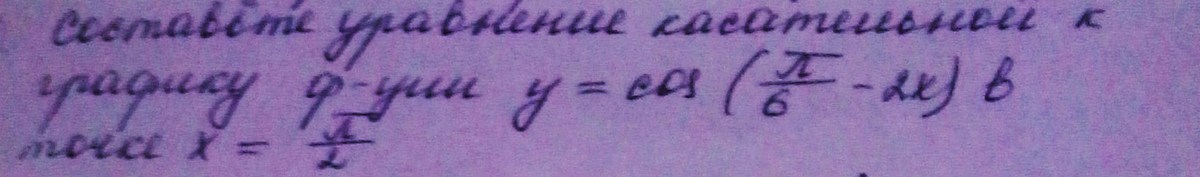 Составьте уравнение касательной к
графику ф-ции y = cos (π/6 - 2x) в
точке x = π/2